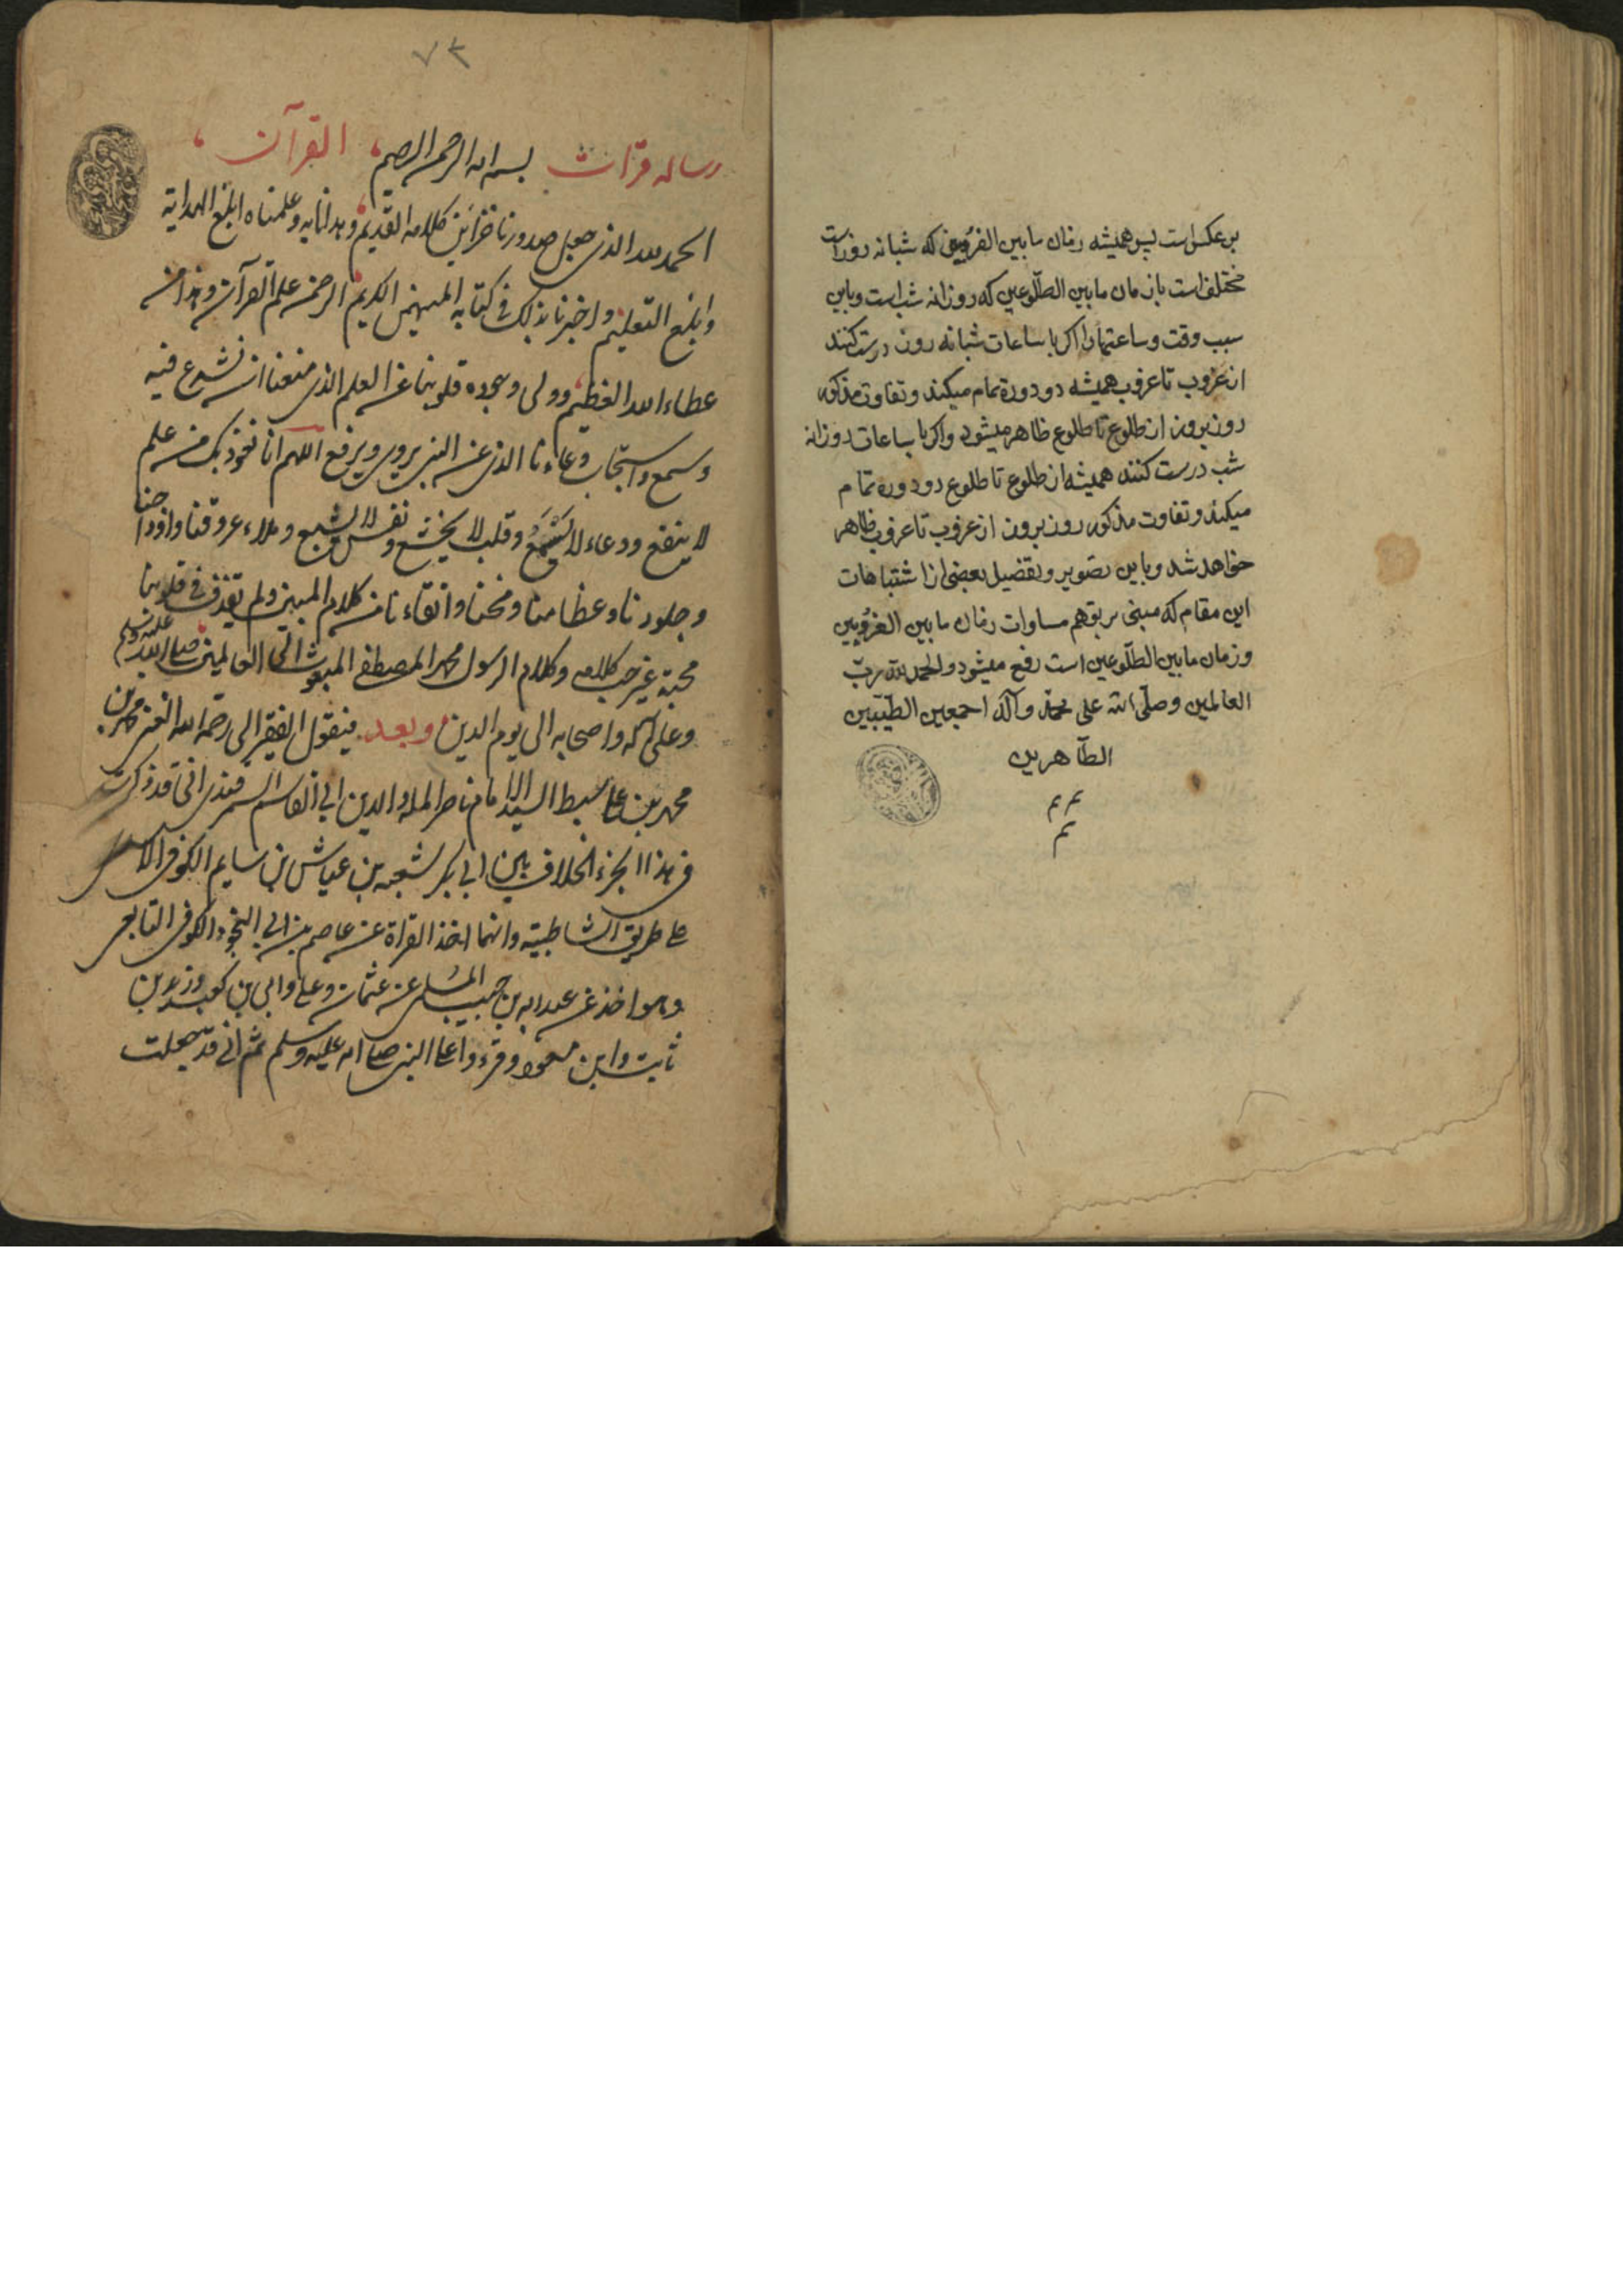 برعکس است پس همیشه زمان مابین الغروبین که شبانه روز است
مختلف است با زمان مابین الطلّوعین که روزانه شب است و باین
سبب وقت و ساعتها را اکر با ساعات شبانه روز درست کنند
از غروب تا غروب همیشه دو دوره تمام میکند و تفاوت مذکور
روز بروز از طلوع تا طلوع ظاهر میشود و اکر با ساعات روزانه
شب درست کنند همیشه از طلوع تا طلوع دو دوره تمام
میکند و تفاوت مذکور روز بروز از غروب تا غروب ظاهر
خواهد شد و باین تصویر و تفضیل بعضی از اشتباهات
این مقام که مبنی بر توهم مساوات زمان مابین الغروبین
و زمان مابین الطلّوعین است رفع میشود والحمد لله ربّ
العالمین وصلّی الله علی محمّد وآله اجمعین الطیّبین
الطّاهرین
۷۳
رساله قرّات القرآن
بسم الله الرحمن الرحیم
الحمد لله الذی جعل صدورنا خزاین کلامه القدیم وهدانا به وعلمناه ابلغ الهدایة
وابلغ التعلیم واخبرنا بذلک فی کتابه المهیمن الکریم الرحمن علم القرآن وهذا من
عطاء الله العظیم وولی وجوه قلوبنا عن العلم الذی منعنا ان نشرع فیه
وسمع واستجاب دعاءنا الذی عن النبی یروی ویرفع اللهم انا نعوذ بک من علم
لا ینفع ودعاء لا یُسْمَعُ وقلب لا یخشع ونفس لا تشبع وملاء عروقنا واوداجنا
وجلودنا وعظامنا ومخنا وانقاءنا من کلام المبین ولم یقذف فی قلوبنا
محبة غیر حب کلامه وکلام الرسول محمد المصطفی المبعوث الی العالمین صلی الله علیه وسلم
وعلی آله واصحابه الی یوم الدین وبعد فیقول الفقیر الی رحمة الله الغنی محمد بن
محمد بن علی سبط السید الامام ناصر الملة والدین ابی القاسم السمرقندی انی قد ذکرت
فی هذا الجزء الخلاف بین ابی بکر شعبه بن عیاش بن سالم الکوفی
علی طریق الشاطبیة وانهما اخذ القراة عن عاصم بن ابی النجود الکوفی التابعی
وهو اخذ عن عبد الله بن حبیب السلمی عن عثمان وعلی وابی بن کعب وزید بن
ثابت وابن مسعود وقرءوا علی النبی صلی الله علیه وسلم ثم انی قد جعلت